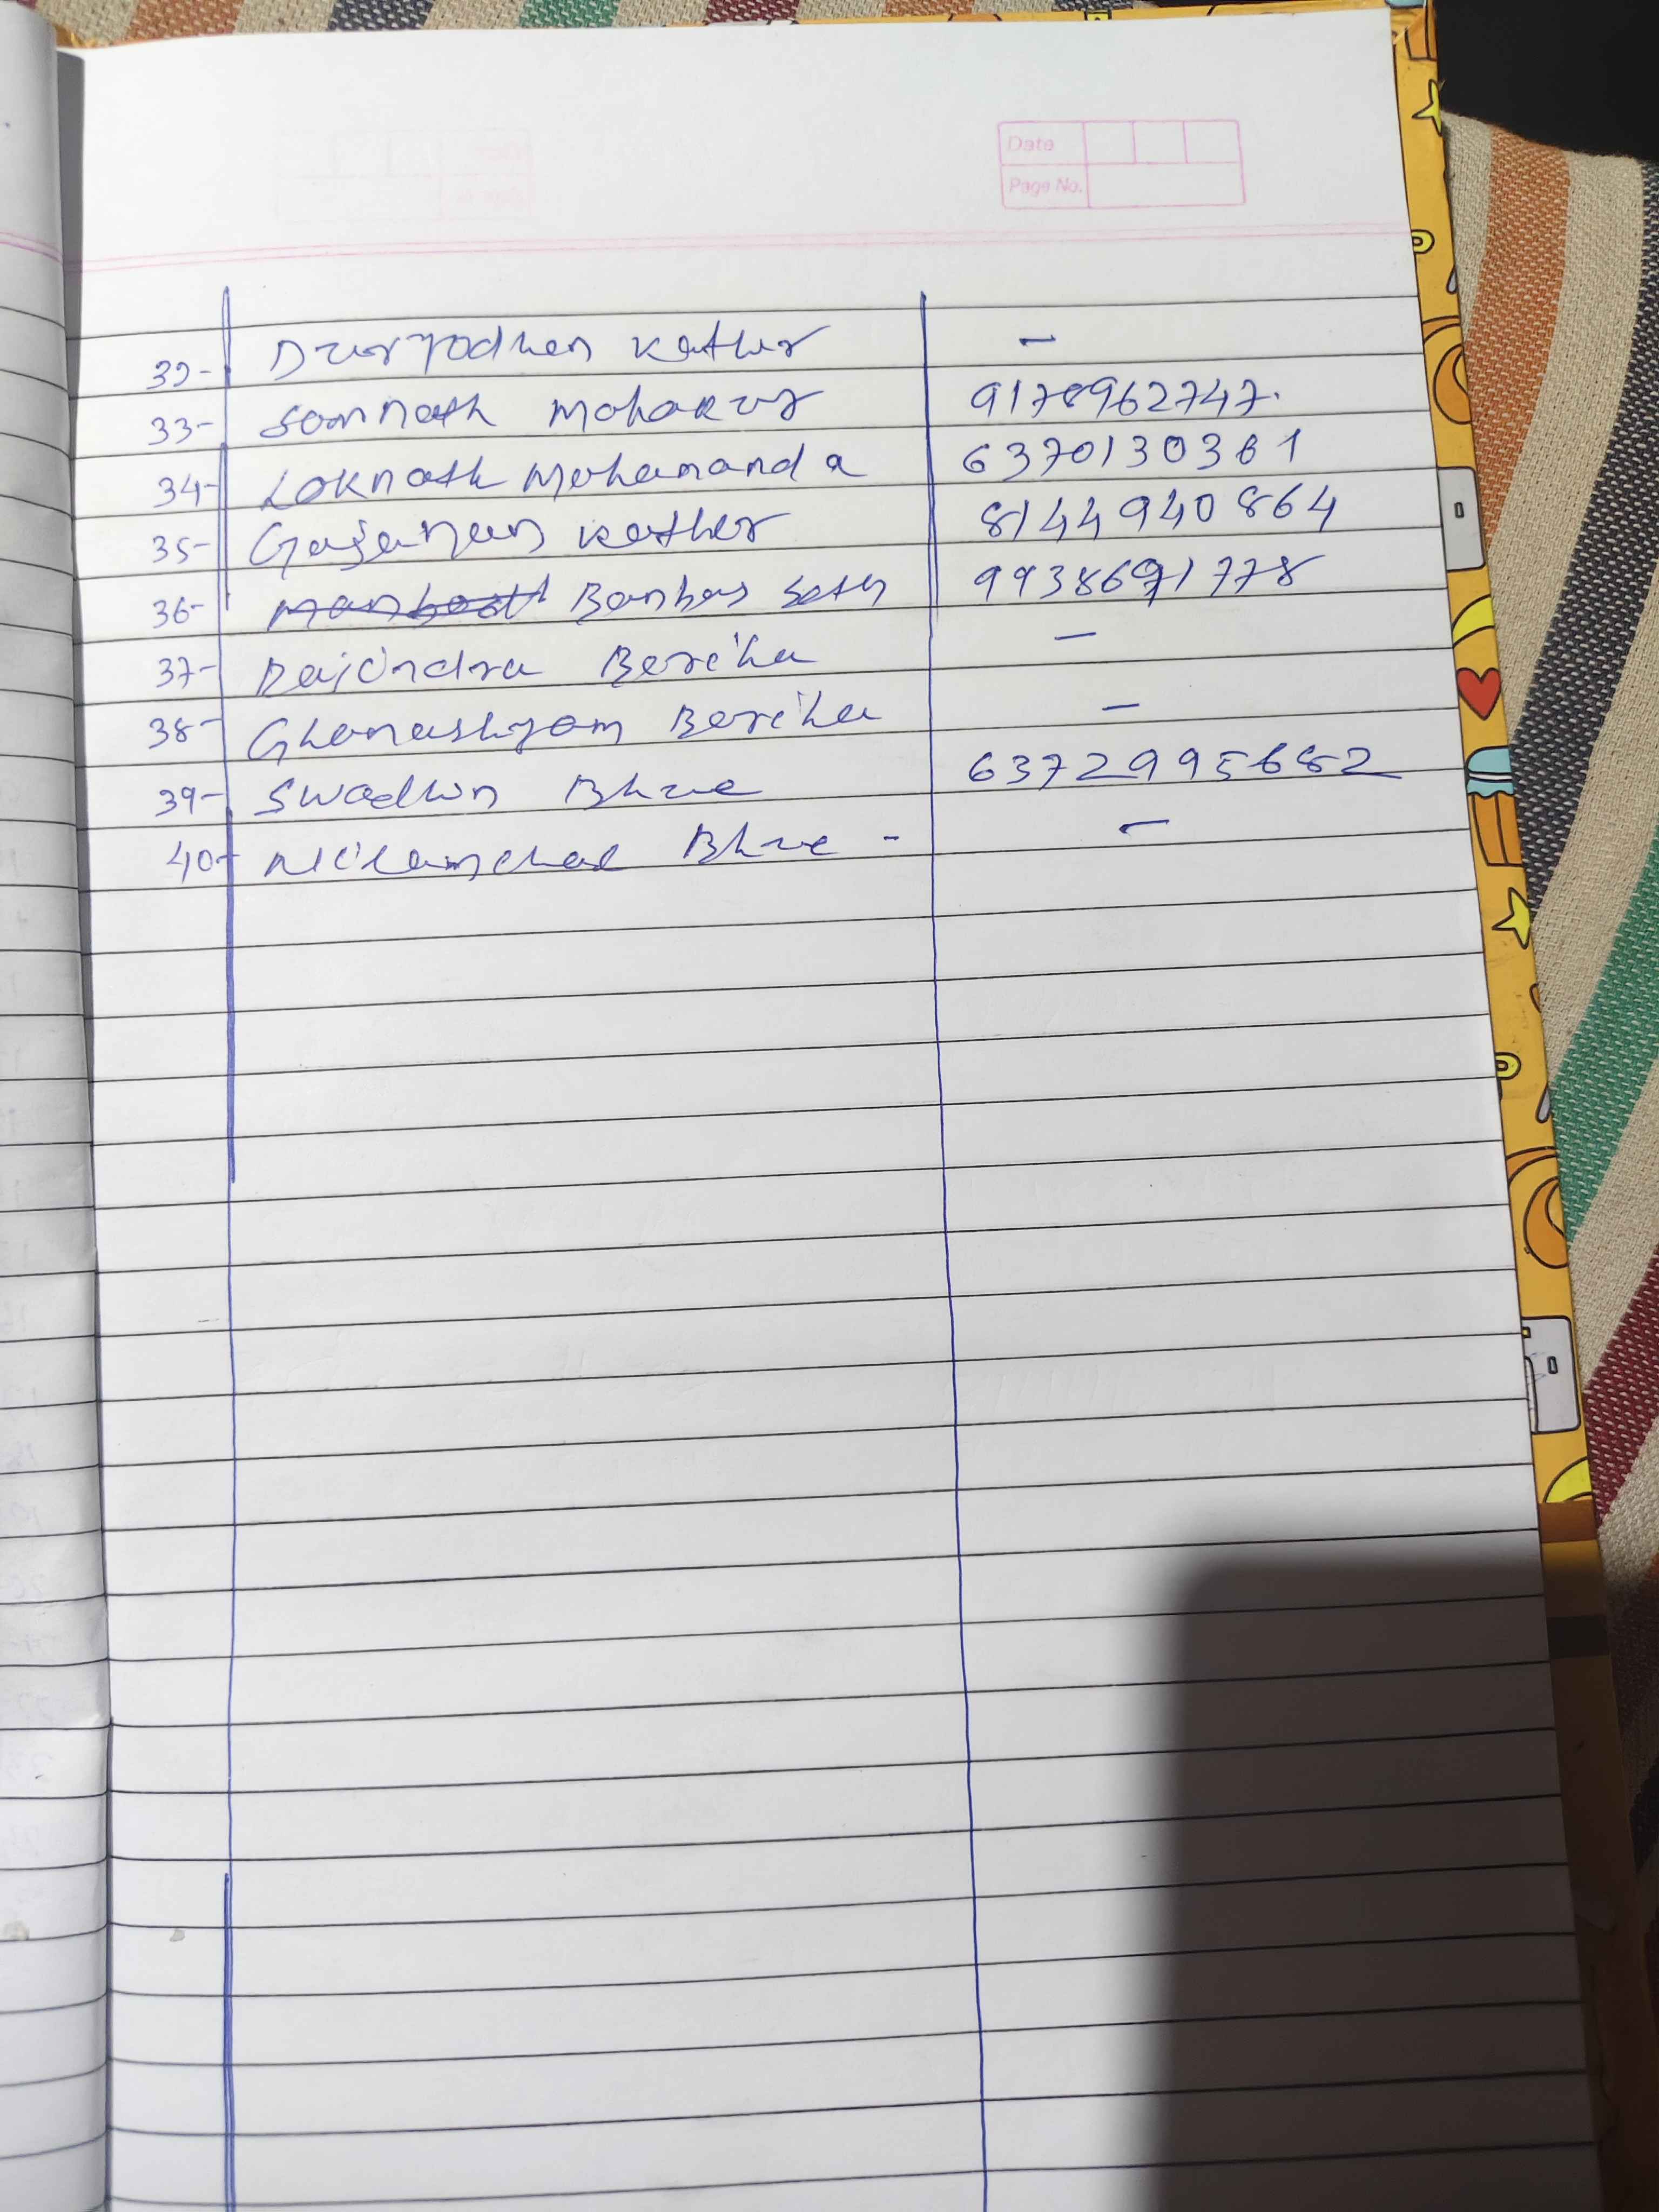 Date
Page No.
32- Duryodhen Kather -
33- Somnath Mohakur 9178962747.
34- Loknath Mohananda 6370130361
35- Gajanan Kather 8144940864
36- Banbas Seth 9938691778
37- Rajindra Bereiha -
38- Ghanashyam Bereiha -
39- Swadhin Bhue 6372995682
40- Nilamchal Bhue - -